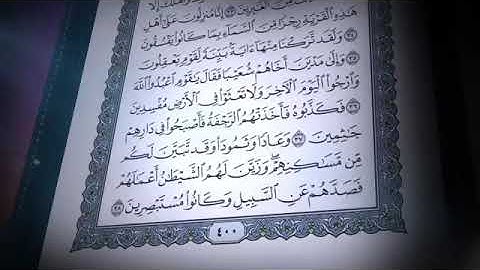 هَٰذِهِ ٱلْقَرْيَةِ رِجْزًا مِّنَ ٱلسَّمَآءِ بِمَا كَانُوا۟ يَفْسُقُونَ
٣٤ وَلَقَد تَّرَكْنَا مِنْهَآ ءَايَةًۢ بَيِّنَةً لِّقَوْمٍ يَعْقِلُونَ
٣٥ وَإِلَىٰ مَدْيَنَ أَخَاهُمْ شُعَيْبًا فَقَالَ يَٰقَوْمِ ٱعْبُدُوا۟ ٱللَّهَ
وَٱرْجُوا۟ ٱلْيَوْمَ ٱلْءَاخِرَ وَلَا تَعْثَوْا۟ فِى ٱلْأَرْضِ مُفْسِدِينَ
٣٦ فَكَذَّبُوهُ فَأَخَذَتْهُمُ ٱلرَّجْفَةُ فَأَصْبَحُوا۟ فِى دَارِهِمْ
جَٰثِمِينَ ٣٧ وَعَادًا وَثَمُودَا۟ وَقَد تَّبَيَّنَ لَكُم
مِّن مَّسَٰكِنِهِمْ ۖ وَزَيَّنَ لَهُمُ ٱلشَّيْطَٰنُ أَعْمَٰلَهُمْ
فَصَدَّهُمْ عَنِ ٱلسَّبِيلِ وَكَانُوا۟ مُسْتَبْصِرِينَ ٣٨
٤٠٠